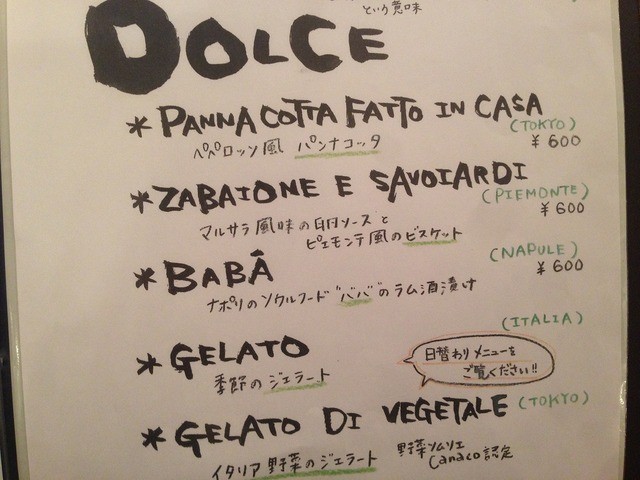 という意味
DOLCE
* PANNA COTTA FATTO IN CASA
(TOKYO)
ペペロッソ風 パンナコッタ
¥600
* ZABAIONE E SAVOIARDI
(PIEMONTE)
マルサラ風味の卵ソースと
¥600
ピエモンテ風のビスケット
* BABÂ
(NAPULE)
¥600
ナポリのソウルフード"ババ"のラム酒漬け
(ITALIA)
* GELATO
季節のジェラート
日替わりメニューを
ご覧ください!!
* GELATO DI VEGETALE (TOKYO)
イタリア野菜のジェラート
野菜ソムリエ
Canaco認定